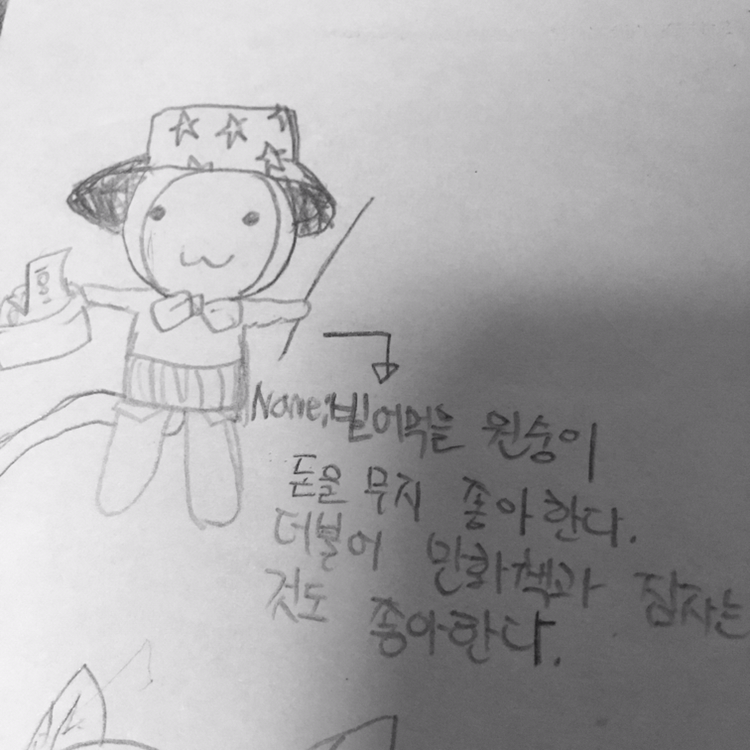 Name; 빌어먹을 원숭이
돈을 무지 좋아한다.
더불어 만화책과 잠자는
것도 좋아한다.